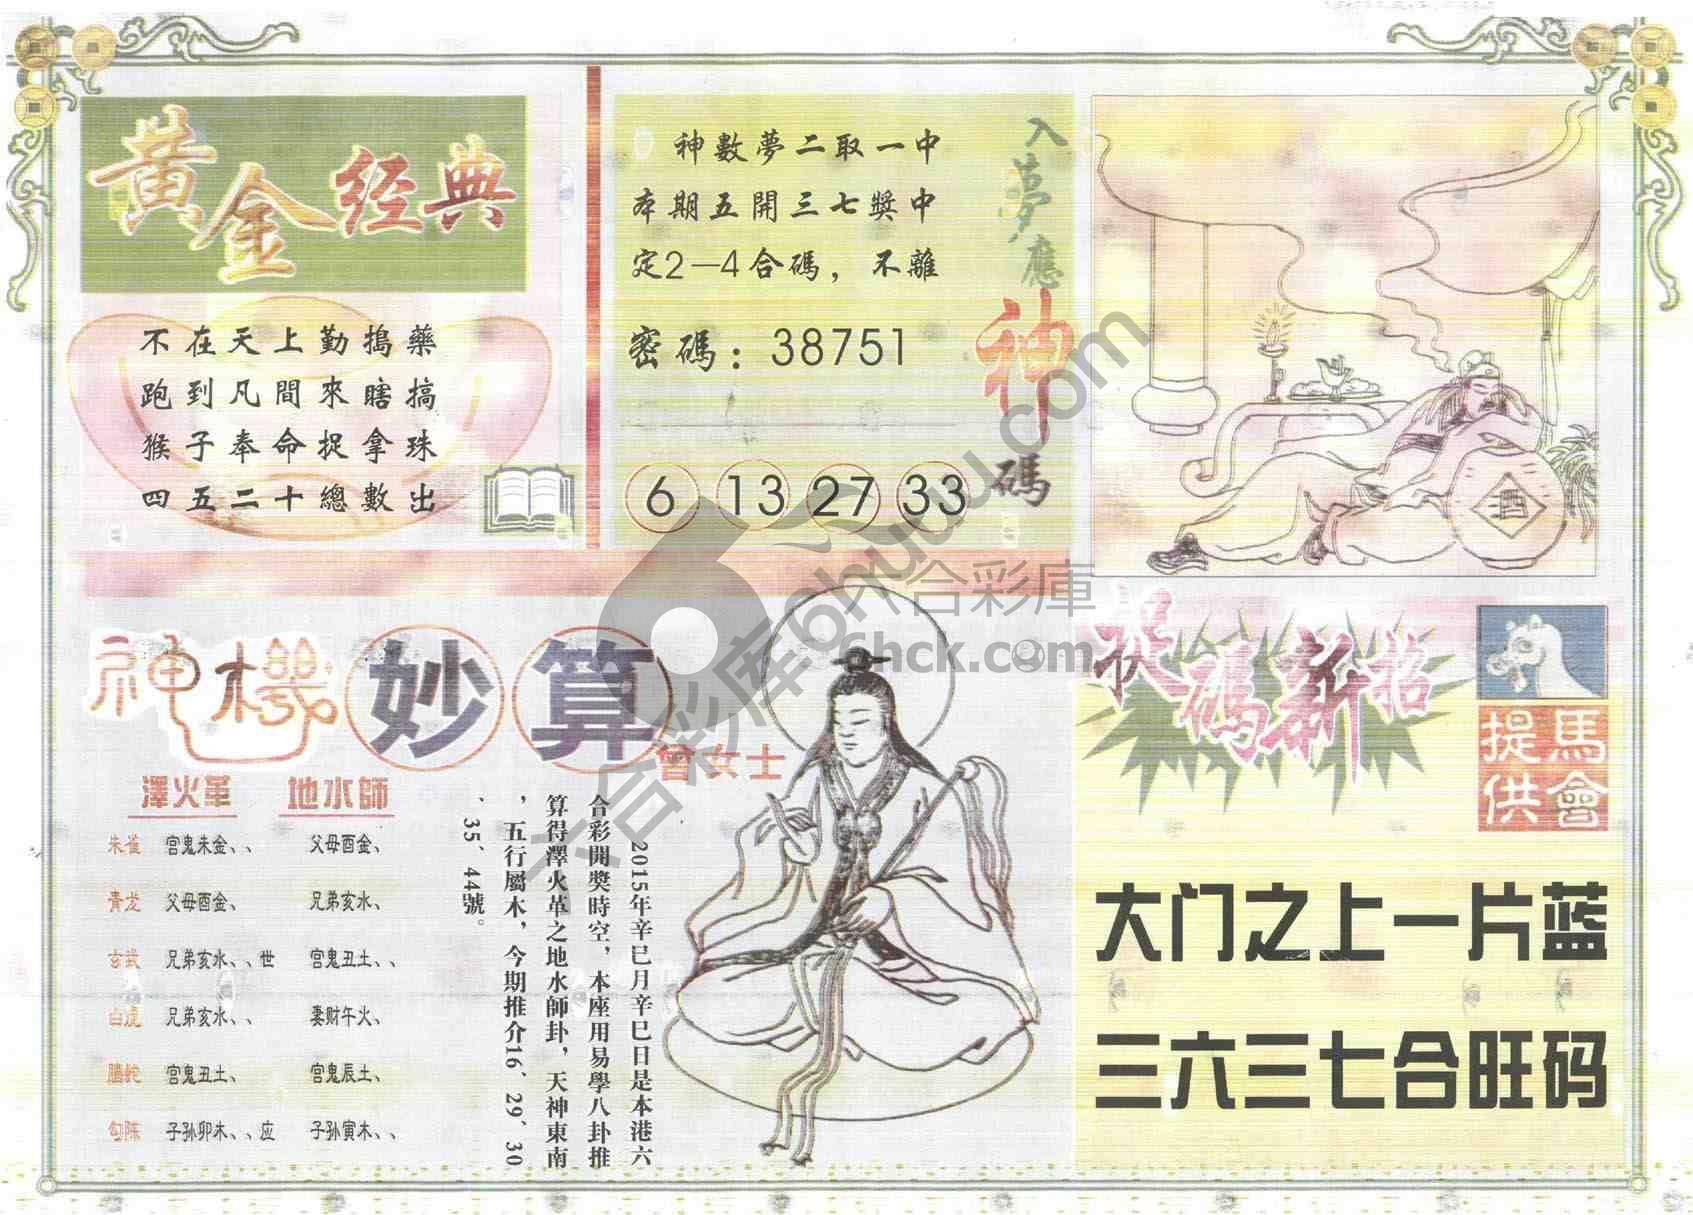 黄金经典
不在天上勤搗藥
跑到凡間來瞎搞
猴子奉命捉拿珠
四五二十總數出
神數夢二取一中
本期五開三七獎中
定2—4合碼，不離
密碼：38751
6 13 27 33
入夢應神碼
酒
神機妙算
曾女士
澤火革 地水師
朱雀 官鬼未金、、 父母酉金、
青龙 父母酉金、 兄弟亥水、
玄武 兄弟亥水、、世 官鬼丑土、、
白虎 兄弟亥水、、 妻财午火、
騰蛇 官鬼丑土、 官鬼辰土、
勾陈 子孙卯木、、应 子孙寅木、、
2015年辛巳月辛巳日是本港六
合彩開獎時空，本座用易學八卦推
算得澤火革之地水師卦，天神東南
，五行屬木，今期推介16、29、30
、35、44號。
捉码新招
馬會提供
大门之上一片蓝
三六三七合旺码
六合彩库6huuu.com
六合彩庫
6hck.com